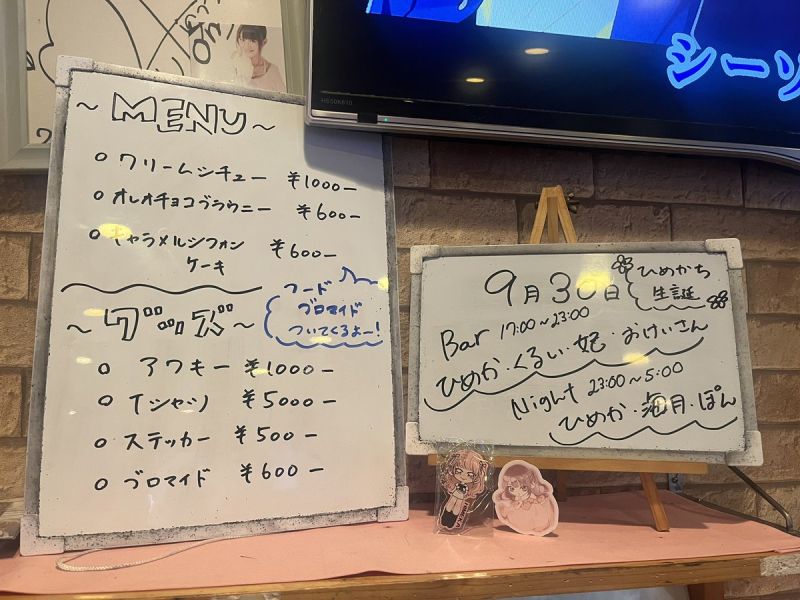 ~ MENU ~
○ クリームシチュー ¥1000-
○ オレオチョコブラウニー ¥600-
○ キャラメルシフォン
ケーキ ¥600-
フード
ブロマイド
ついてくるよー!
~ グッズ ~
○ アクキー ¥1000-
○ Tシャツ ¥5000-
○ ステッカー ¥500-
○ ブロマイド ¥600-
シーソ
HS50K610
9月30日
ひめかち
生誕
Bar 17:00~23:00
ひめか・くるい・妃・おけいさん
Night 23:00~5:00
ひめか・海月・ぽん